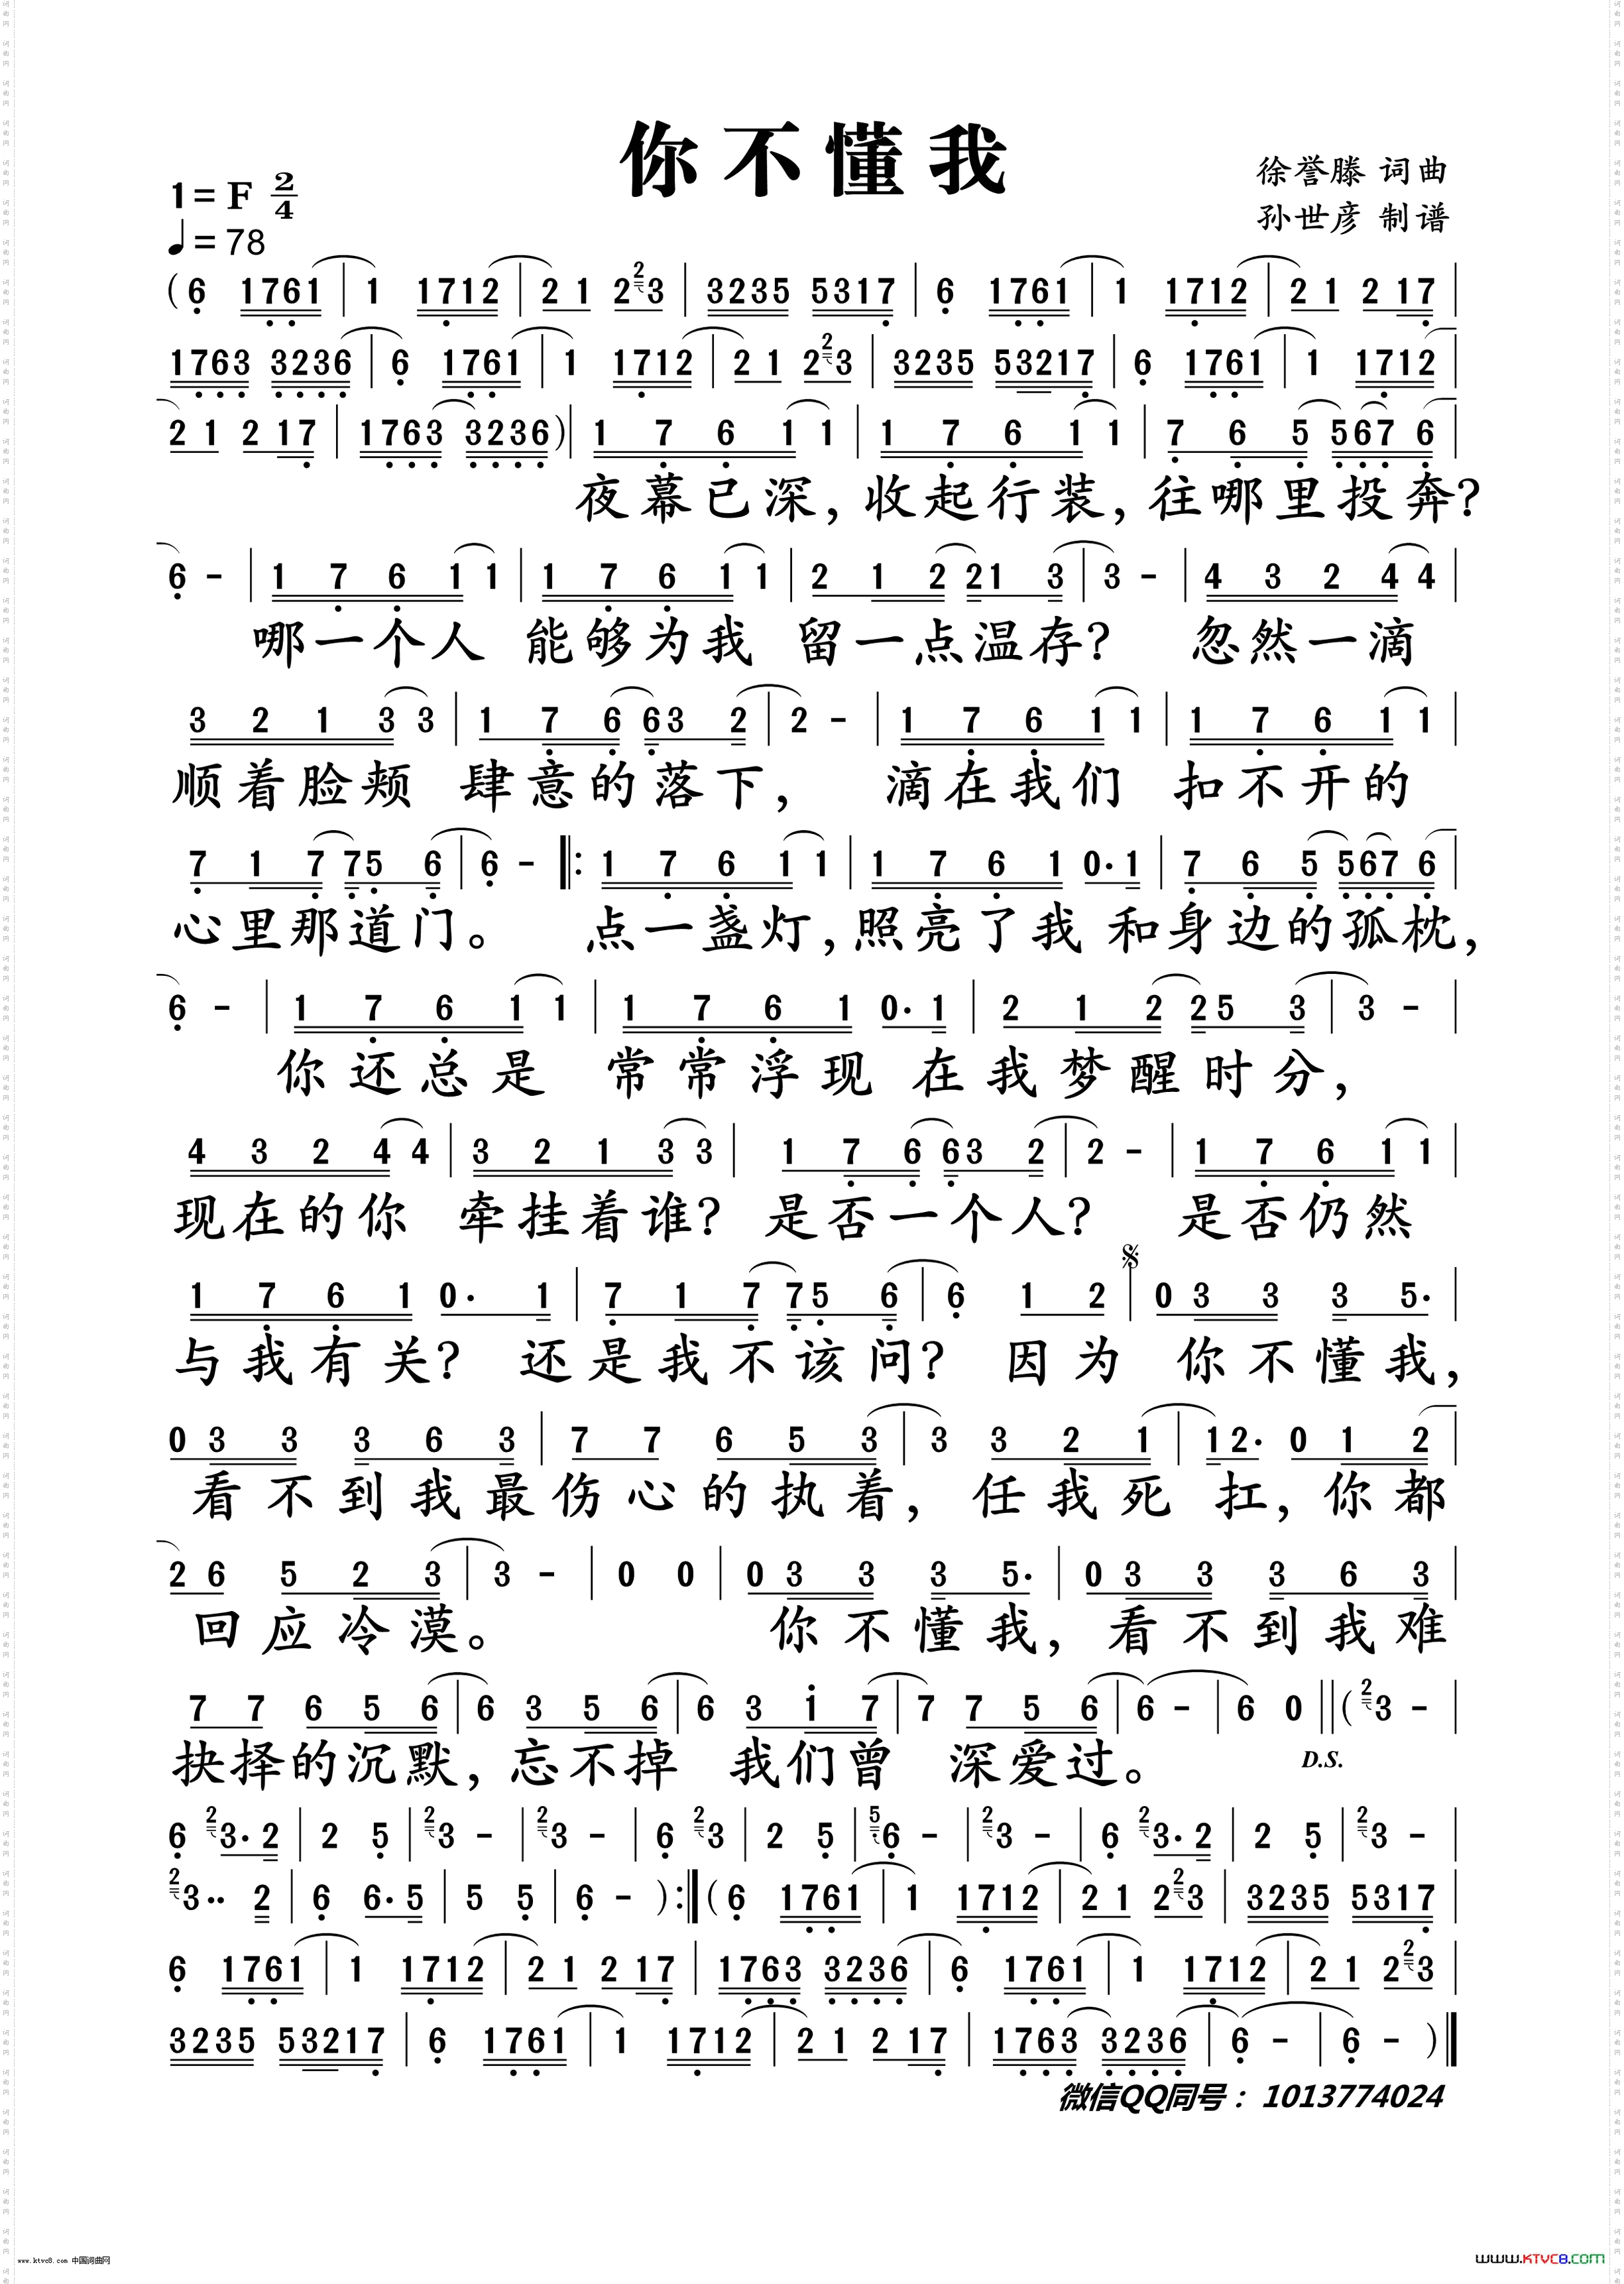 你不懂我
徐誉滕 词曲
孙世彦 制谱
1=F 2/4
♩=78
(6 1761|1 1712|21 2 2 3|3235 5317|6 1761|1 1712|21 2 17|
1763 3236|6 1761|1 1712|21 2 2 3|3235 53217|6 1761|1 1712|
21 2 17|1763 3236)|1 7 6 1 1|1 7 6 1 1|7 6 5 567 6|
夜幕已深,收起行装,往哪里投奔?
6 -|1 7 6 1 1|1 7 6 1 1|2 1 2 21 3|3 -|4 3 2 4 4|
哪一个人 能够为我 留一点温存? 忽然一滴
3 2 1 3 3|1 7 6 63 2|2 -|1 7 6 1 1|1 7 6 1 1|
顺着脸颊 肆意的落下, 滴在我们 扣不开的
7 1 7 75 6|6 -‖:1 7 6 1 1|1 7 6 1 0·1|7 6 5 567 6|
心里那道门。 点一盏灯,照亮了我 和身边的孤枕,
6 -|1 7 6 1 1|1 7 6 1 0·1|2 1 2 25 3|3 -|
你还总是 常常浮现 在我梦醒时分,
4 3 2 4 4|3 2 1 3 3|1 7 6 63 2|2 -|1 7 6 1 1|
现在的你 牵挂着谁? 是否一个人? 是否仍然
1 7 6 1 0· 1|7 1 7 75 6|6 1 2|0 3 3 3 5·|
与我有关? 还是我不该问? 因为 你不懂我,
0 3 3 3 6 3|7 7 6 5 3|3 3 2 1|12· 0 1 2|
看不到我最伤心的执着, 任我死 扛,你都
2 6 5 2 3|3 -|0 0|0 3 3 3 5·|0 3 3 3 6 3|
回应冷漠。 你不懂我,看不到我难
7 7 6 5 6|6 3 5 6|6 3 1 7|7 7 5 6|6 -|6 0‖(2 3 -|
抉择的沉默,忘不掉 我们曾 深爱过。 D.S.
6 2 3·2|2 5|2 3 -|2 3 -|6 2 3|2 5|5 6 -|2 3 -|6 2 3·2|2 5|2 3 -|
2 3·· 2|6 6·5|5 5|6 -):‖(6 1761|1 1712|21 2 2 3|3235 5317|
6 1761|1 1712|21 2 17|1763 3236|6 1761|1 1712|21 2 2 3|
3235 53217|6 1761|1 1712|21 2 17|1763 3236|6 -|6 -)‖
微信QQ同号:1013774024
www.ktvc8.com 中国词曲网
www.KTVC8.com